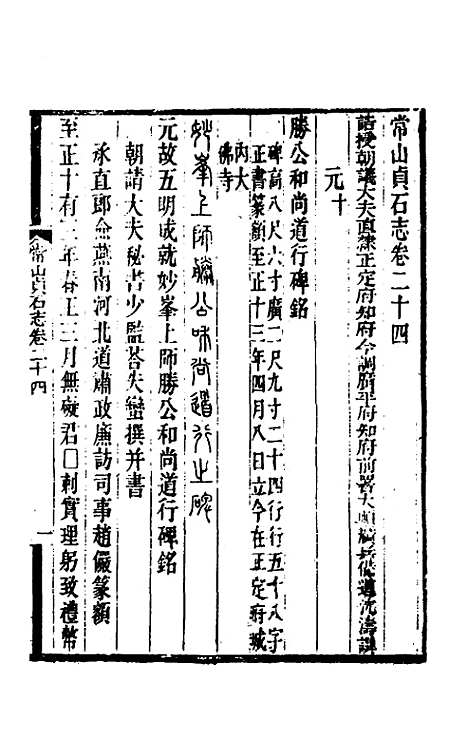 常山貞石志卷二十四
誥授朝議大夫直隸正定府知府今調廣平府知府前署大順廣兵備道沈濤譔
元十
勝公和尚道行碑銘
碑高八尺六寸廣二尺九寸二十四行行五十八字
正書篆額至正十三年四月八日立今在正定府城
內大
佛寺
妙峯上師勝公和尚道行之碑
元故五明成就妙峯上師勝公和尚道行碑銘
朝請大夫秘書少監荅失蠻撰并書
承直郎僉燕南河北道肅政廉訪司事趙儼篆額
至正十有二年春王三月無礙君□剌實理躬致禮幣
常山貞石志卷二十四
一